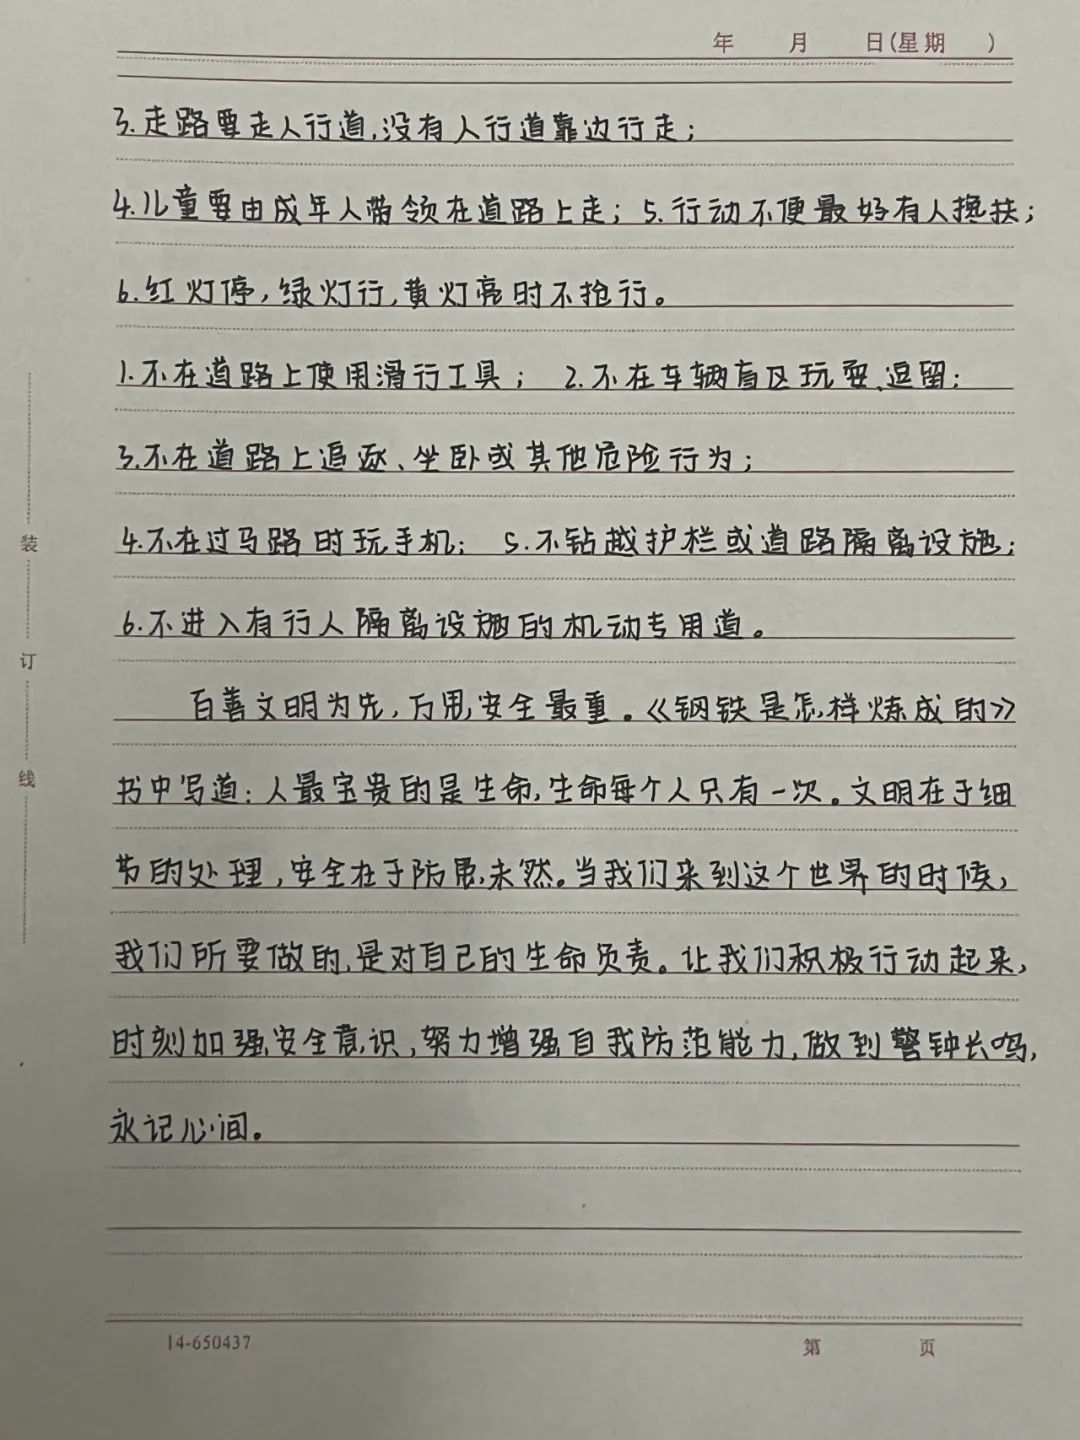 年 月 日(星期 )
3.走路要走人行道,没有人行道靠边行走;
4.儿童要由成年人带领在道路上走;5.行动不便最好有人搀扶;
6.红灯停,绿灯行,黄灯亮时不抢行。
1.不在道路上使用滑行工具; 2.不在车辆盲区玩耍、逗留;
3.不在道路上追逐、坐卧或其他危险行为;
4.不在过马路时玩手机; 5.不钻越护栏或道路隔离设施;
6.不进入有行人隔离设施的机动专用道。
百善文明为先,万思安全最重。《钢铁是怎样炼成的》
书中写道:人最宝贵的是生命,生命每个人只有一次。文明在于细
节的处理,安全在于防患未然。当我们来到这个世界的时候,
我们所要做的,是对自己的生命负责。让我们积极行动起来,
时刻加强安全意识,努力增强自我防范能力,做到警钟长鸣,
永记心间。
装
订
线
14-650437
第 页